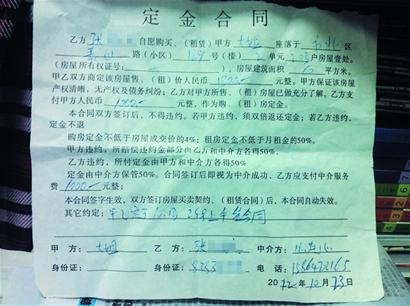 定金合同
乙方:张 自愿购买、(租赁)甲方 大姐 座落于 市北 区
路(小区) 号(楼) 单元 户房屋壹处。
(房屋所有权证号: ),房屋建筑面积 平方米,
甲乙双方商定该房屋售、(租)价人民币 元整。甲方保证该房屋
产权清晰、无产权及债务纠纷;乙方对甲方所售、(租)房屋已做充分了解。乙方支
付甲方人民币 1000 元整,作为购、(租)房定金。
本合同双方签订后,不得违约。甲方违约,须双倍返还定金;若乙方违约,
定金不退
购房定金不低于房屋成交价的4%;租房定金不低于月租金的50%。
甲方违约,所赔偿违约金部分由乙方和中介方各得50%
乙方违约,所付定金由甲方和中介方各得50%
定金由中介方保管50%。合同签订后即视为中介成功,乙方应支付中介服务
费 1000 元整;
本合同签字生效,双方签订房屋买卖契约、(租赁合同)后,本合同自动失效。
其它约定:
甲方: 大姐 乙方: 张 中介方:
身份证: 身份证: 电话:
2012年12月23日